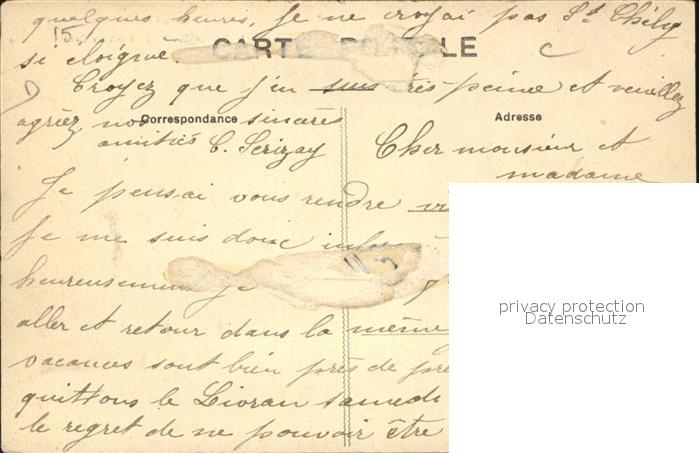 quelques heures, je ne croyai pas St Chély
15
si eloigné.
CARTE POSTALE
Croyez que j'en suis très peiné et veuillez
agréez nos sincères
Correspondance
Adresse
amitiés C. Serizay
Cher monsieur et
madame
Je pensai vous rendre
Je me suis donc
heureusement je
aller et retour dans la même
vacances sont bien près de
quittons le Lioran samedi
le regret de ne pouvoir être
privacy protection
Datenschutz